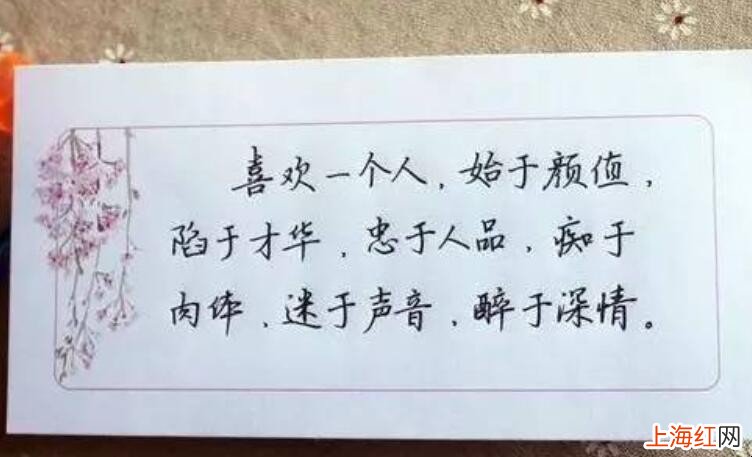 喜欢一个人，始于颜值，
陷于才华，忠于人品，痴于
肉体，迷于声音，醉于深情。
上海红网